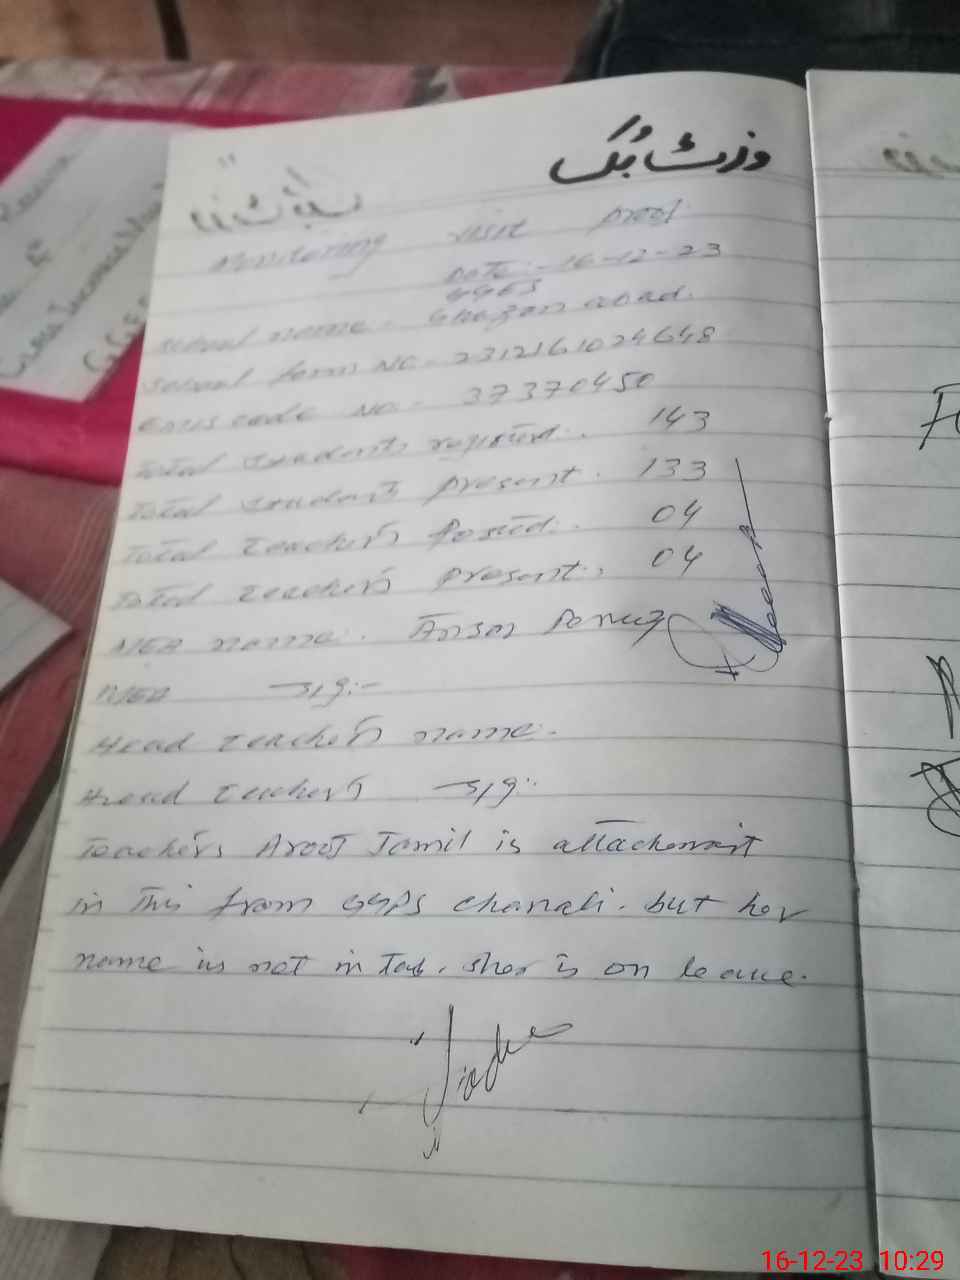 وزٹ بُک
Monitoring visit proof
Date:- 16-12-23
GGES
School name. Ghazan abad.
School form No- 2312161024648
Emis code No.- 37370450
Total students registerd. 143
Total students present. 133
Total teachers Posted. 04
Total teachers present. 04
MEA name. Ansar Pervez
MEA sig:-
Head teachers name.
Head teachers sig:
Teachers Arooj Jamil is attachemnt
in this from GGPS chanali. but her
name is not in Tab. sher is on leave.
16-12-23 10:29